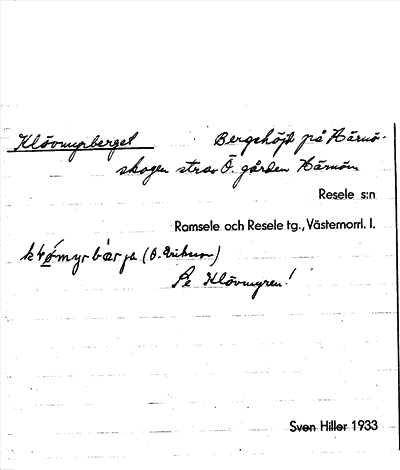 Klövmyrberget Bergshöjd på Härnö-
skogen strax Ö. gården Härnön
Resele s:n
Ramsele och Resele tg., Västernorrl. l.
(O. Erikson)
Se Klövmyren!
Sven Hiller 1933